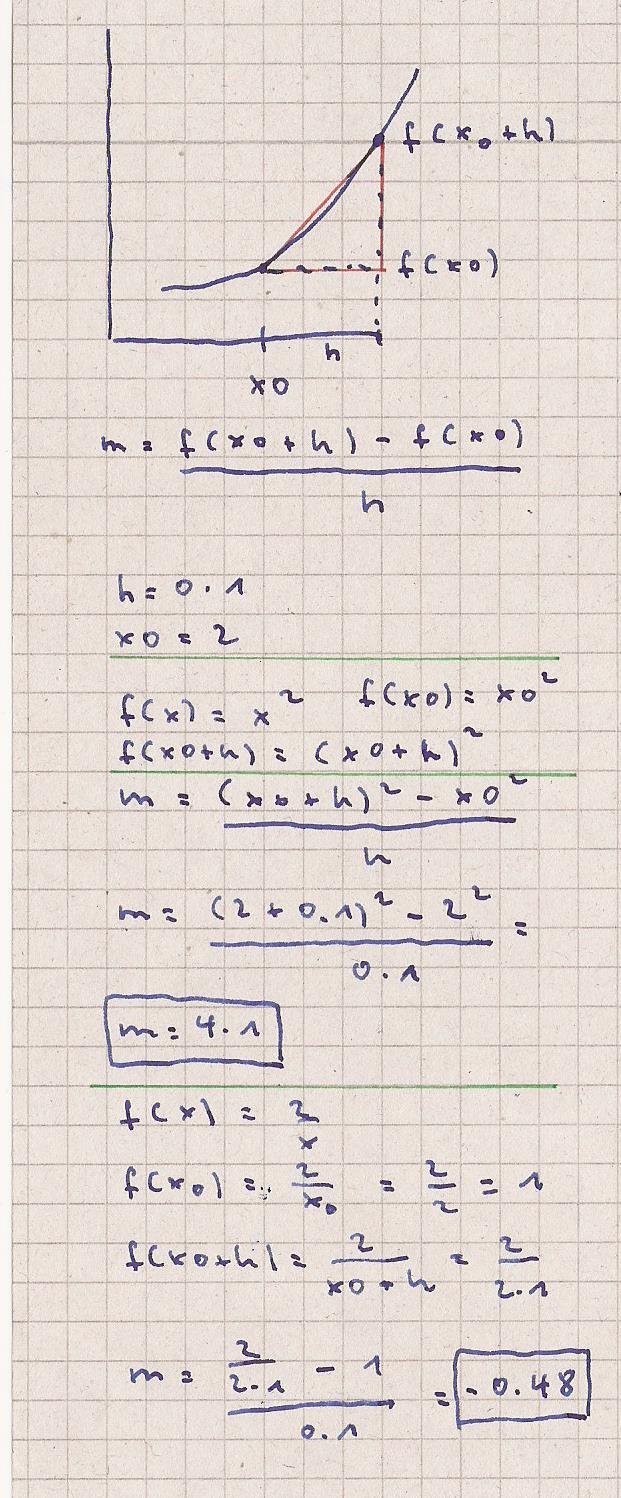 f(x₀+h)
f(x0)
h
x0
m = f(x0+h) - f(x0)
h
h = 0.1
x0 = 2
f(x) = x² f(x0) = x0²
f(x0+h) = (x0+h)²
m = (x0+h)² - x0²
h
m = (2+0.1)² - 2² =
0.1
m = 4.1
f(x) = 2/x
f(x₀) = 2/x₀ = 2/2 = 1
f(x0+h) = 2/x0+h = 2/2.1
m = 2/2.1 - 1 = -0.48
0.1